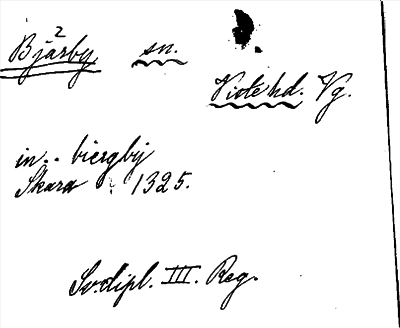 Bjärby sn.
2
Viste hd. Vg.
in.. biergby
Skara 1325.
Sv. dipl. III. Reg.